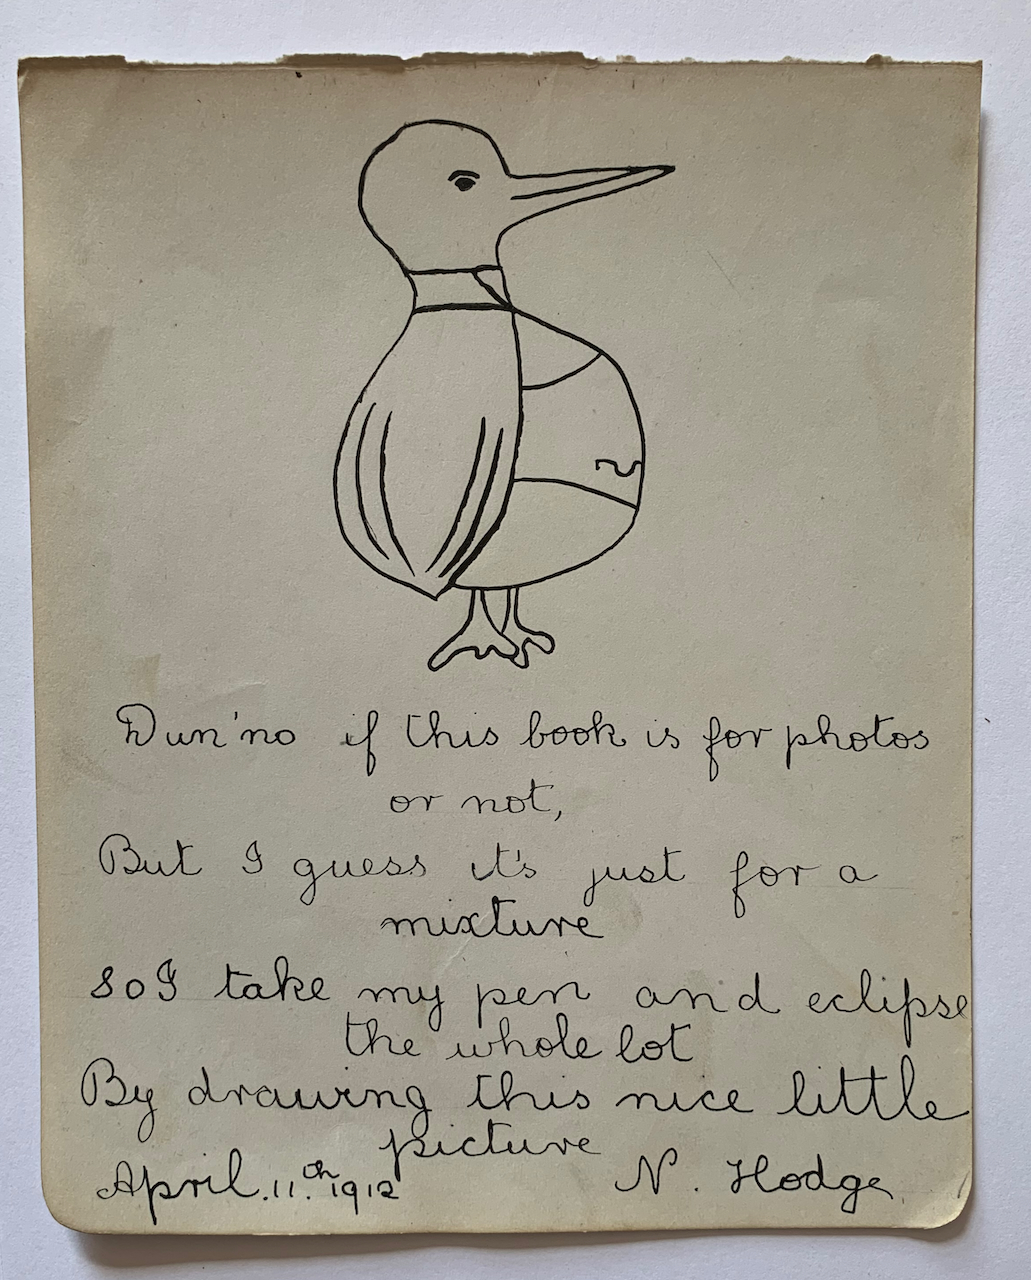 Dun'no if this book is for photos
or not,
But I guess it's just for a
mixture
So I take my pen and eclipse
the whole lot
By drawing this nice little
picture
April. 11.th 1912 N. Hodge